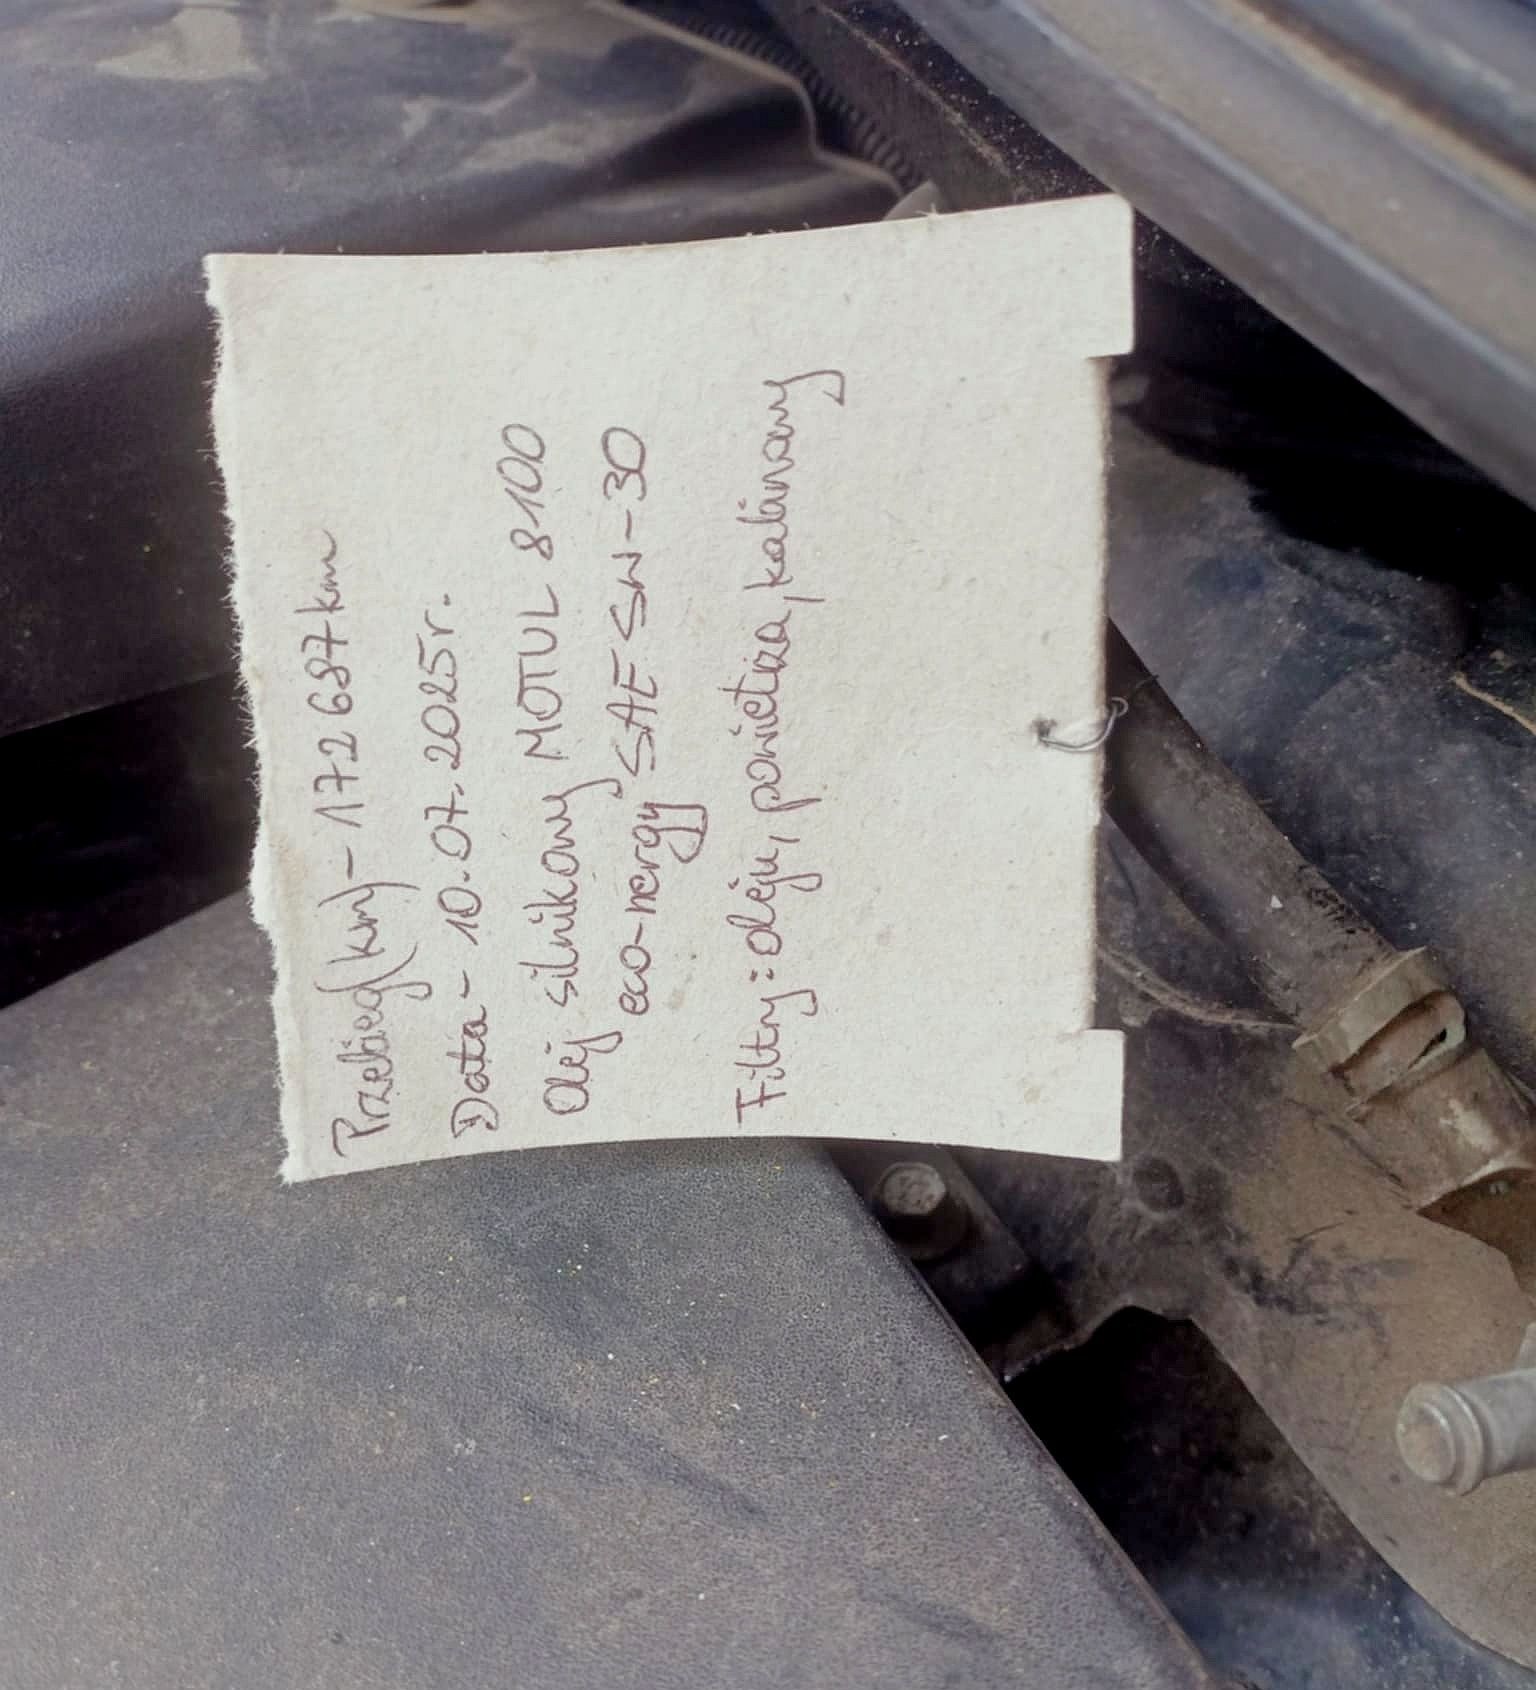 Przebieg(km) - 172 687 km
Data - 10.07.2025r.
Olej silnikowy MOTUL 8100
eco-nergy SAE 5W-30
Filtry: oleju, powietrza, kabinowy